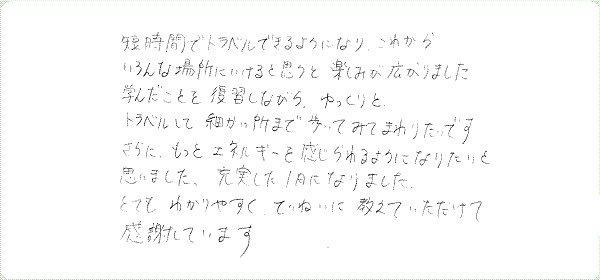 短時間でトラベルできるようになり、これから
いろんな場所にいけると思うと楽しみが広がりました
学んだことを復習しながら、ゆっくりと、
トラベルして細かい所まで歩いてみてまわりたいです
さらに、もっとエネルギーを感じられるようになりたいと
思いました。充実した1月になりました。
とてもわかりやすく、ていねいに教えていただけて
感謝しています